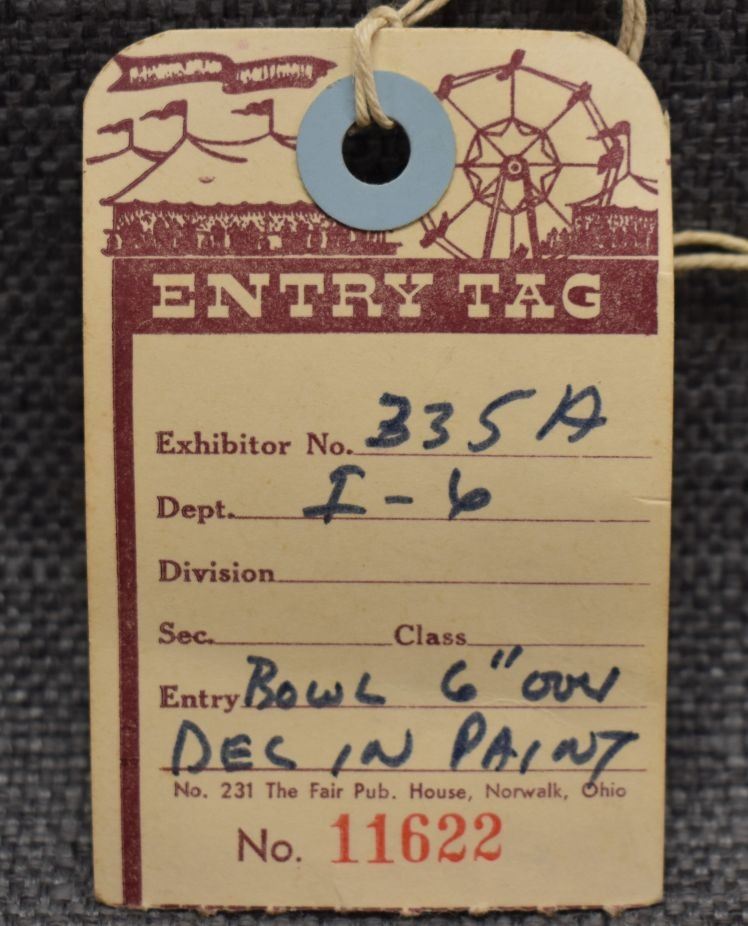 ENTRY TAG
Exhibitor No. 335A
Dept. I-6
Division
Sec. Class
Entry BOWL 6" OVER
DEC IN PAINT
No. 231 The Fair Pub. House, Norwalk, Ohio
No. 11622